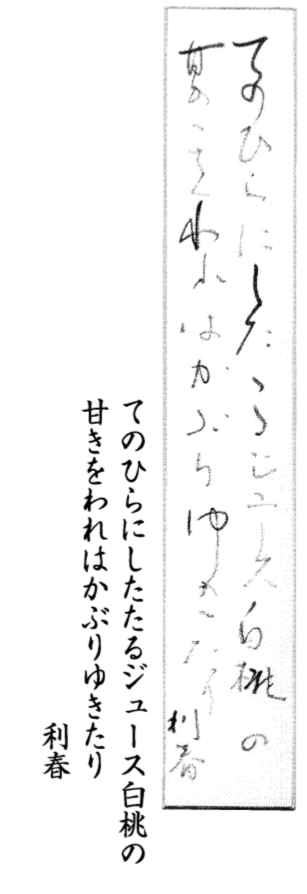 てのひらにしたたるジュース白桃の
甘きをわれはかぶりゆきたり
利春
てのひらにしたたるジュース白桃の
甘きをわれはかぶりゆきたり
利春